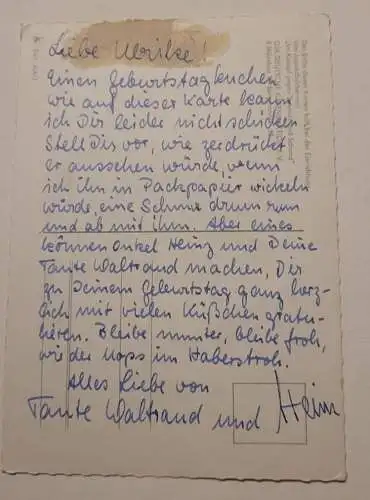 Liebe Ulrike!
Einen Geburtstagkuchen
wie auf dieser Karte kann
ich Dir leider nicht schicken
Stell Dir vor, wie zerdrückt
er aussehen würde, wenn
ich ihn in Packpapier wickeln
würde, eine Schnur drum rum
und ab mit ihm. Aber eines
können onkel Heinz und Deine
Tante Waltraud machen, Dir
zu Deinem Geburtstag ganz herz-
lich mit vielen Küßchen gratu-
lieren. Bleibe munter, bleibe froh,
wie der Mops im Haberstroh.
Alles Liebe von
Tante Waltraud und Heinz